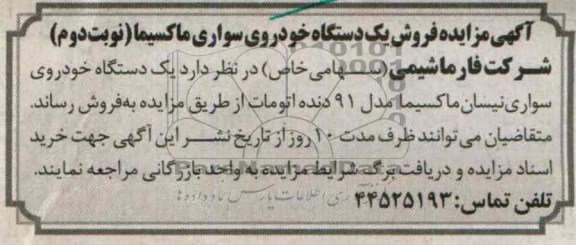 آگهی مزایده فروش یک دستگاه خودروی سواری ماکسیما (نوبت دوم)
شرکت فارماشیمی (سهامی خاص) در نظر دارد یک دستگاه خودروی
سواری نیسان ماکسیما مدل ۹۱ دنده اتومات از طریق مزایده به‌فروش رساند.
متقاضیان می توانند ظرف مدت ۱۰ روز از تاریخ نشر این آگهی جهت خرید
اسناد مزایده و دریافت برگ شرایط مزایده به واحد بازرگانی مراجعه نمایند.
تلفن تماس: ۴۴۵۲۵۱۹۳